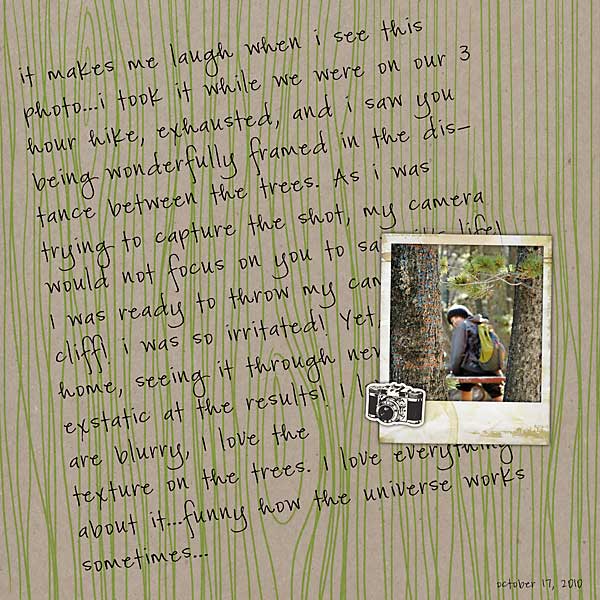 it makes me laugh when i see this
photo...i took it while we were on our 3
hour hike, exhausted, and i saw you
being wonderfully framed in the dis-
tance between the trees. As i was
trying to capture the shot, my camera
would not focus on you to life!
I was ready to throw my
cliff! i was so irritated! Yet,
home, seeing it through
exstatic at the results! I
are blurry, i love the
texture on the trees. I love everything
about it...funny how the universe works
sometimes...
october 17, 2010